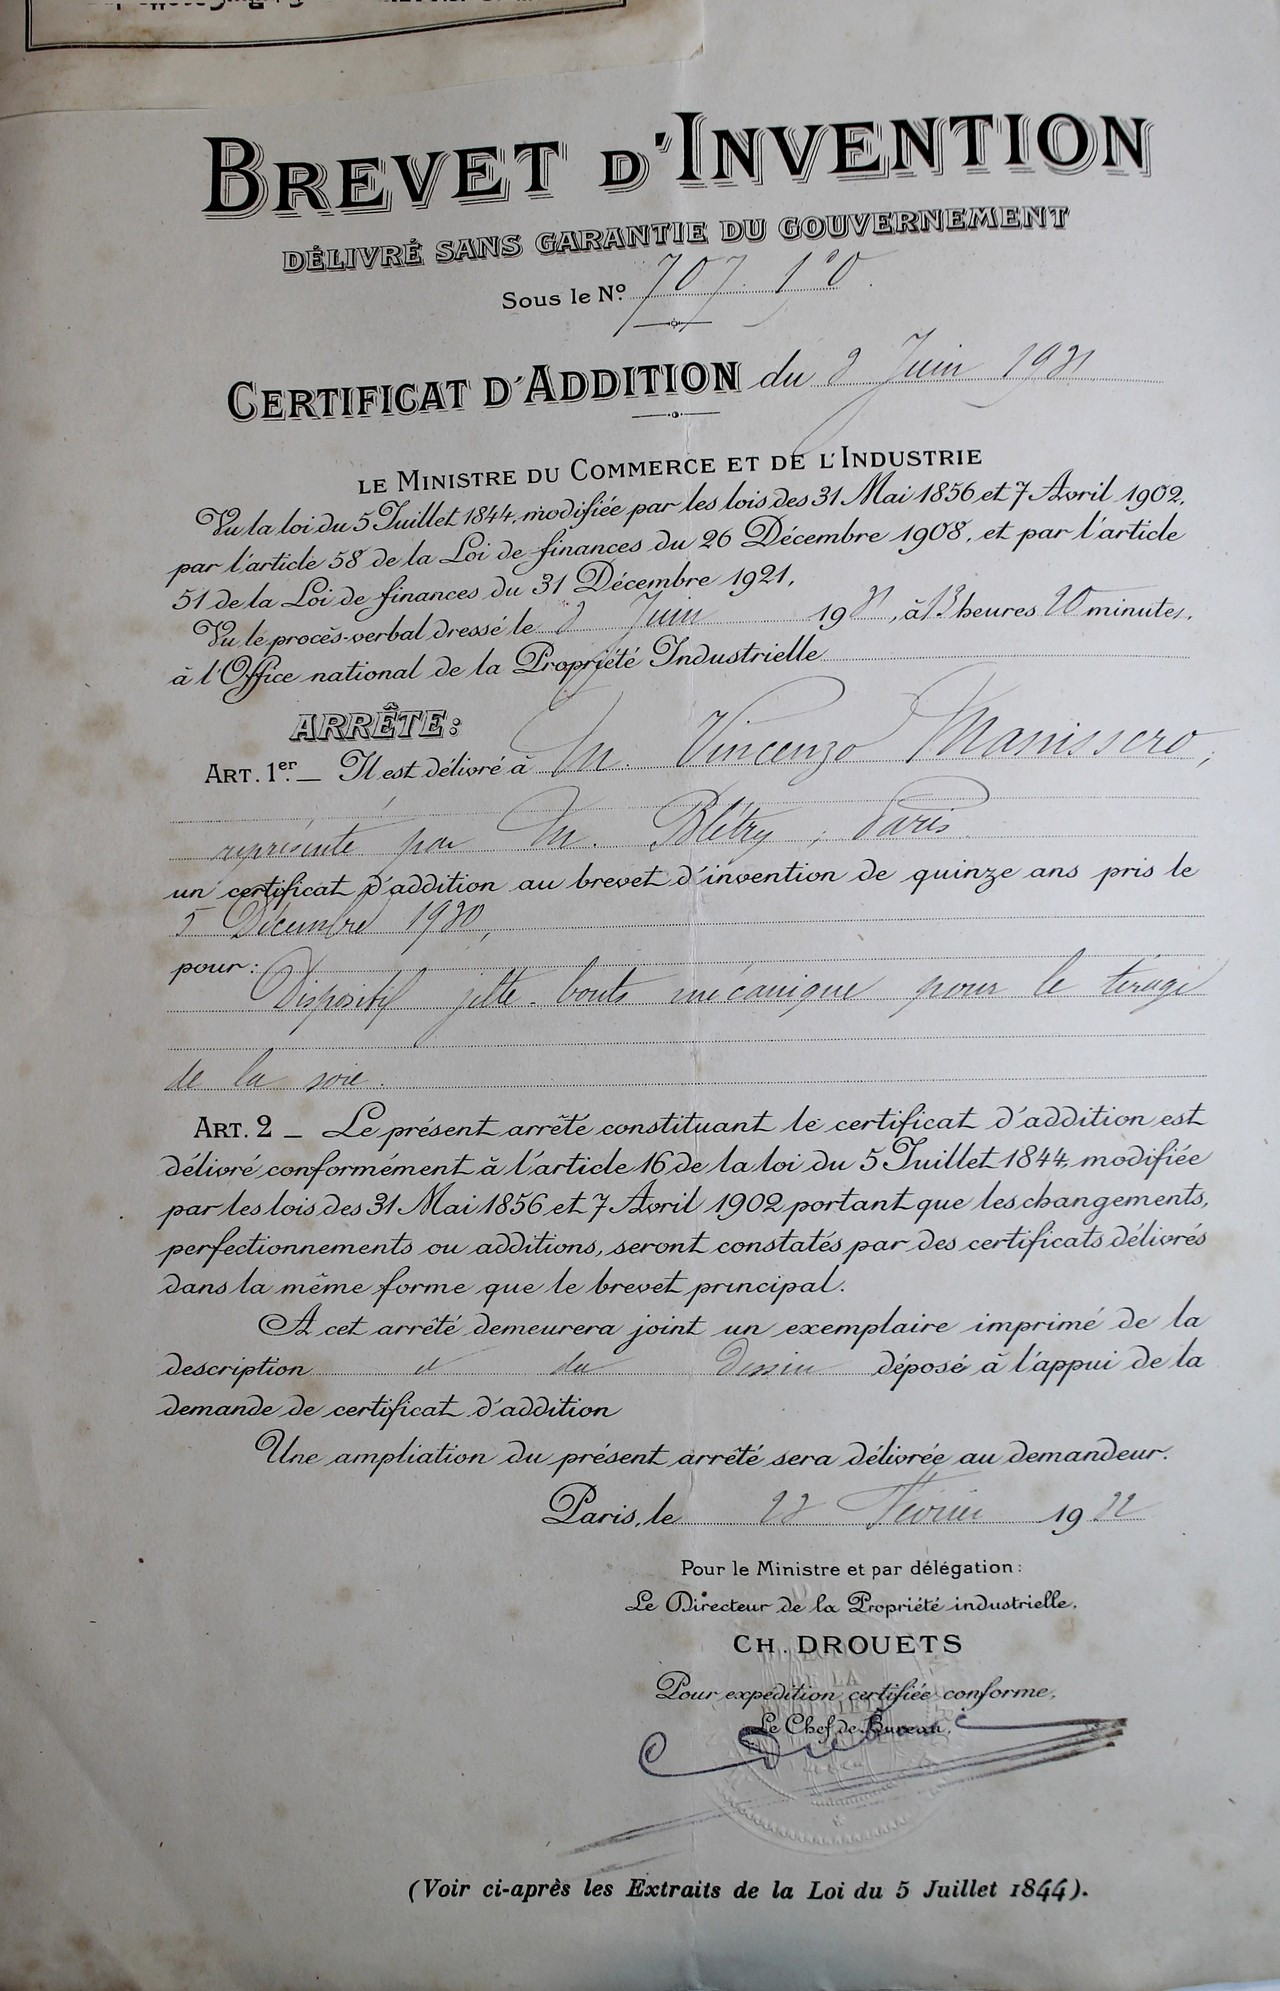 BREVET D'INVENTION
DÉLIVRÉ SANS GARANTIE DU GOUVERNEMENT
Sous le No. 707.
CERTIFICAT D'ADDITION du Juin 1931
LE MINISTRE DU COMMERCE ET DE L'INDUSTRIE
Vu la loi du 5 Juillet 1844, modifiée par les lois des 31 Mai 1856 et 7 Avril 1902,
par l'article 58 de la Loi de finances du 26 Décembre 1908, et par l'article
51 de la Loi de finances du 31 Décembre 1921,
Vu le procès-verbal dressé le Juin 1931, à 13 heures 20 minutes,
à l'Office national de la Propriété Industrielle
ARRÊTE:
ART. 1er. — Il est délivré à M. Vincenzo Manissero,
représenté par M. Blétry, Paris.
un certificat d'addition au brevet d'invention de quinze ans pris le
5 Décembre 1930,
pour: Dispositif jette-bouts mécanique pour le tirage
de la soie.
ART. 2 — Le présent arrêté constituant le certificat d'addition est
délivré conformément à l'article 16 de la loi du 5 Juillet 1844, modifiée
par les lois des 31 Mai 1856 et 7 Avril 1902 portant que les changements,
perfectionnements ou additions, seront constatés par des certificats délivrés
dans la même forme que le brevet principal.
A cet arrêté demeurera joint un exemplaire imprimé de la
description et du dessin déposé à l'appui de la
demande de certificat d'addition
Une ampliation du présent arrêté sera délivrée au demandeur.
Paris, le Février 1932
Pour le Ministre et par délégation:
Le Directeur de la Propriété industrielle,
CH. DROUETS
Pour expédition certifiée conforme,
Le Chef de Bureau,
(Voir ci-après les Extraits de la Loi du 5 Juillet 1844).